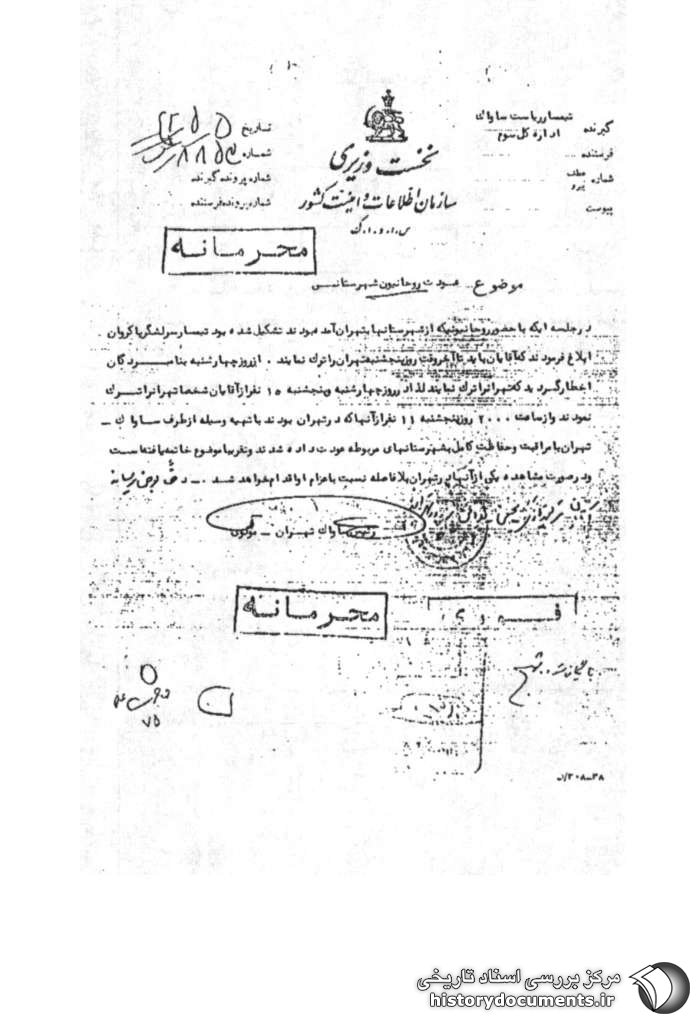 گیرنده تیمسار ریاست ساواک
اداره کل سوم
فرستنده
شماره عطف
پیرو
پیوست
نخست وزیری
سازمان اطلاعات و امنیت کشور
س.ا.و.ا.ک
تاریخ
شماره
شماره پرونده گیرنده
شماره پرونده فرستنده
محرمانه
موضوع عودت روحانیون شهرستانی
در جلسه ایکه با حضور روحانیونیکه از شهرستانها بتهران آمده بودند تشکیل شده بود تیمسار سرلشگر پاکروان
ابلاغ فرمودند که آقایان باید تا آخر وقت روز پنجشنبه تهران را ترک نمایند . از روز چهارشنبه بنامبردگان
اخطار گردید که تهران را ترک نمایند لذا در روز چهارشنبه و پنجشنبه ۱۵ نفر از آقایان شخصا تهران را ترک
نمودند و از ساعت ۲۰۰۰ روز پنجشنبه ۱۱ نفر از آنها که در تهران بودند با تهیه وسیله از طرف ساواک
تهران با مراقبت و حفاظت کامل بشهرستانهای مربوطه عودت داده شدند و تقریبا موضوع خاتمه یافته است
و در صورت مشاهده یکی از آنها در تهران بلافاصله نسبت باعزام او اقدام خواهد شد .
رئیس ساواک تهران ـ مولوی
محرمانه
فوری
مرکز بررسی اسناد تاریخی
historydocuments.ir